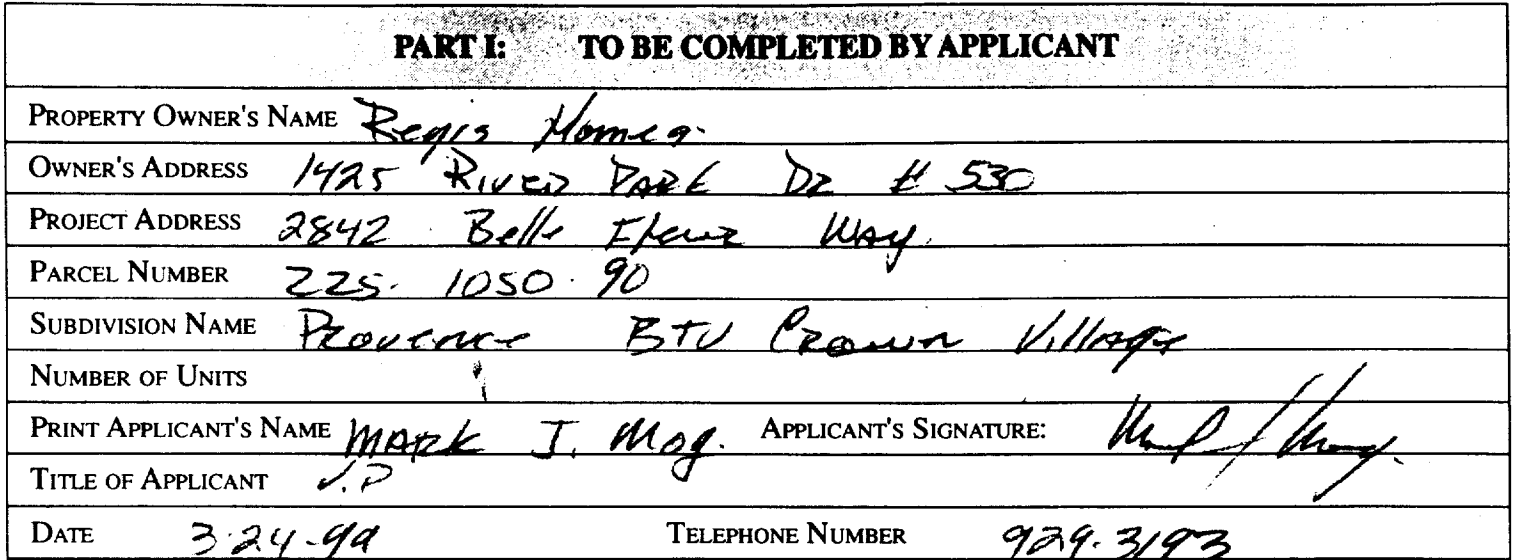 PART I: TO BE COMPLETED BY APPLICANT
PROPERTY OWNER'S NAME Regis Homes
OWNER'S ADDRESS 1425 RIVER PARK DR # 530
PROJECT ADDRESS 2842 Belle Way
PARCEL NUMBER 225-1050-90
SUBDIVISION NAME Provence BTV Crown Village
NUMBER OF UNITS
PRINT APPLICANT'S NAME MARK J. Mog. APPLICANT'S SIGNATURE:
TITLE OF APPLICANT V.P
DATE 3-24-99 TELEPHONE NUMBER 929-3193